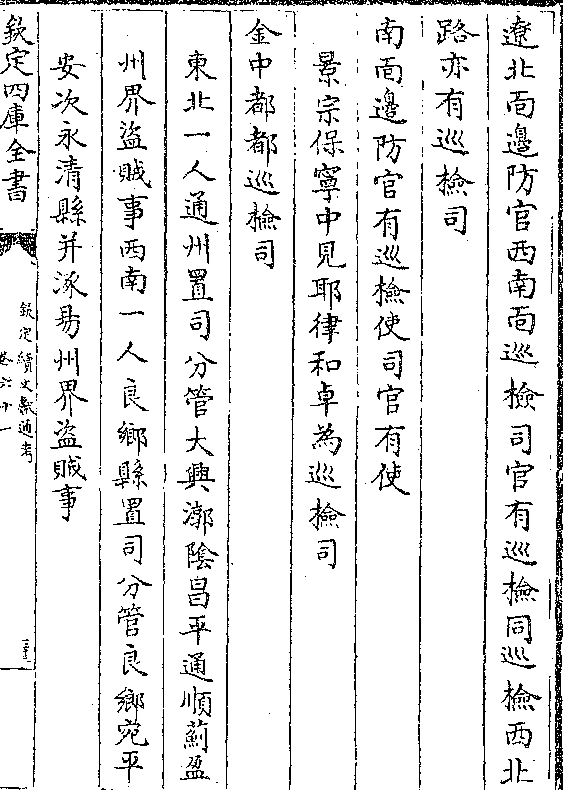 遼北面邊防官西南面巡檢司官有巡檢同巡檢西北
路亦有巡檢司
南面邊防官有巡檢使司官有使
景宗保寧中見耶律和卓為巡檢司
金中都都巡檢司
東北一人通州置司分管大興漷隂昌平通順薊盈
州界盜賊事西南一人良鄉縣置司分管良鄉宛平
安次永清縣并涿易州界盜賊事
欽定四庫全書
欽定續文獻通考
卷六十一